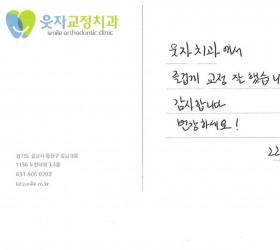 웃자교정치과
smile orthodontic clinic
웃자 치과에서
즐겁게 교정 잘 했습니
감사합니다
번창하세요!
22
경기도 성남시 중원구 성남대로
1156 도원타워 3,5층
031 605 0202